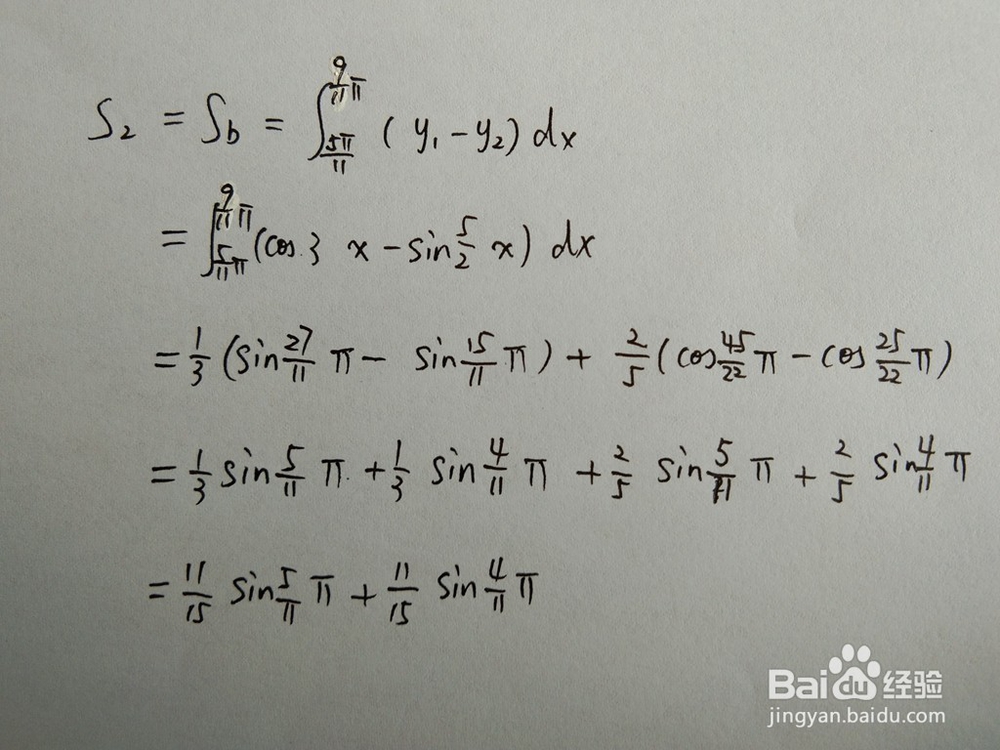 S₂ = S_b = ∫_{5π/11}^{9/11 π} (y₁ - y₂) dx
= ∫_{5/11 π}^{9/11 π} (cos 3 x - sin 5/2 x) dx
= 1/3 (sin 27/11 π - sin 15/11 π) + 2/5 (cos 45/22 π - cos 25/22 π)
= 1/3 sin 5/11 π + 1/3 sin 4/11 π + 2/5 sin 5/11 π + 2/5 sin 4/11 π
= 11/15 sin 5/11 π + 11/15 sin 4/11 π
Baidu 经验
jingyan.baidu.com